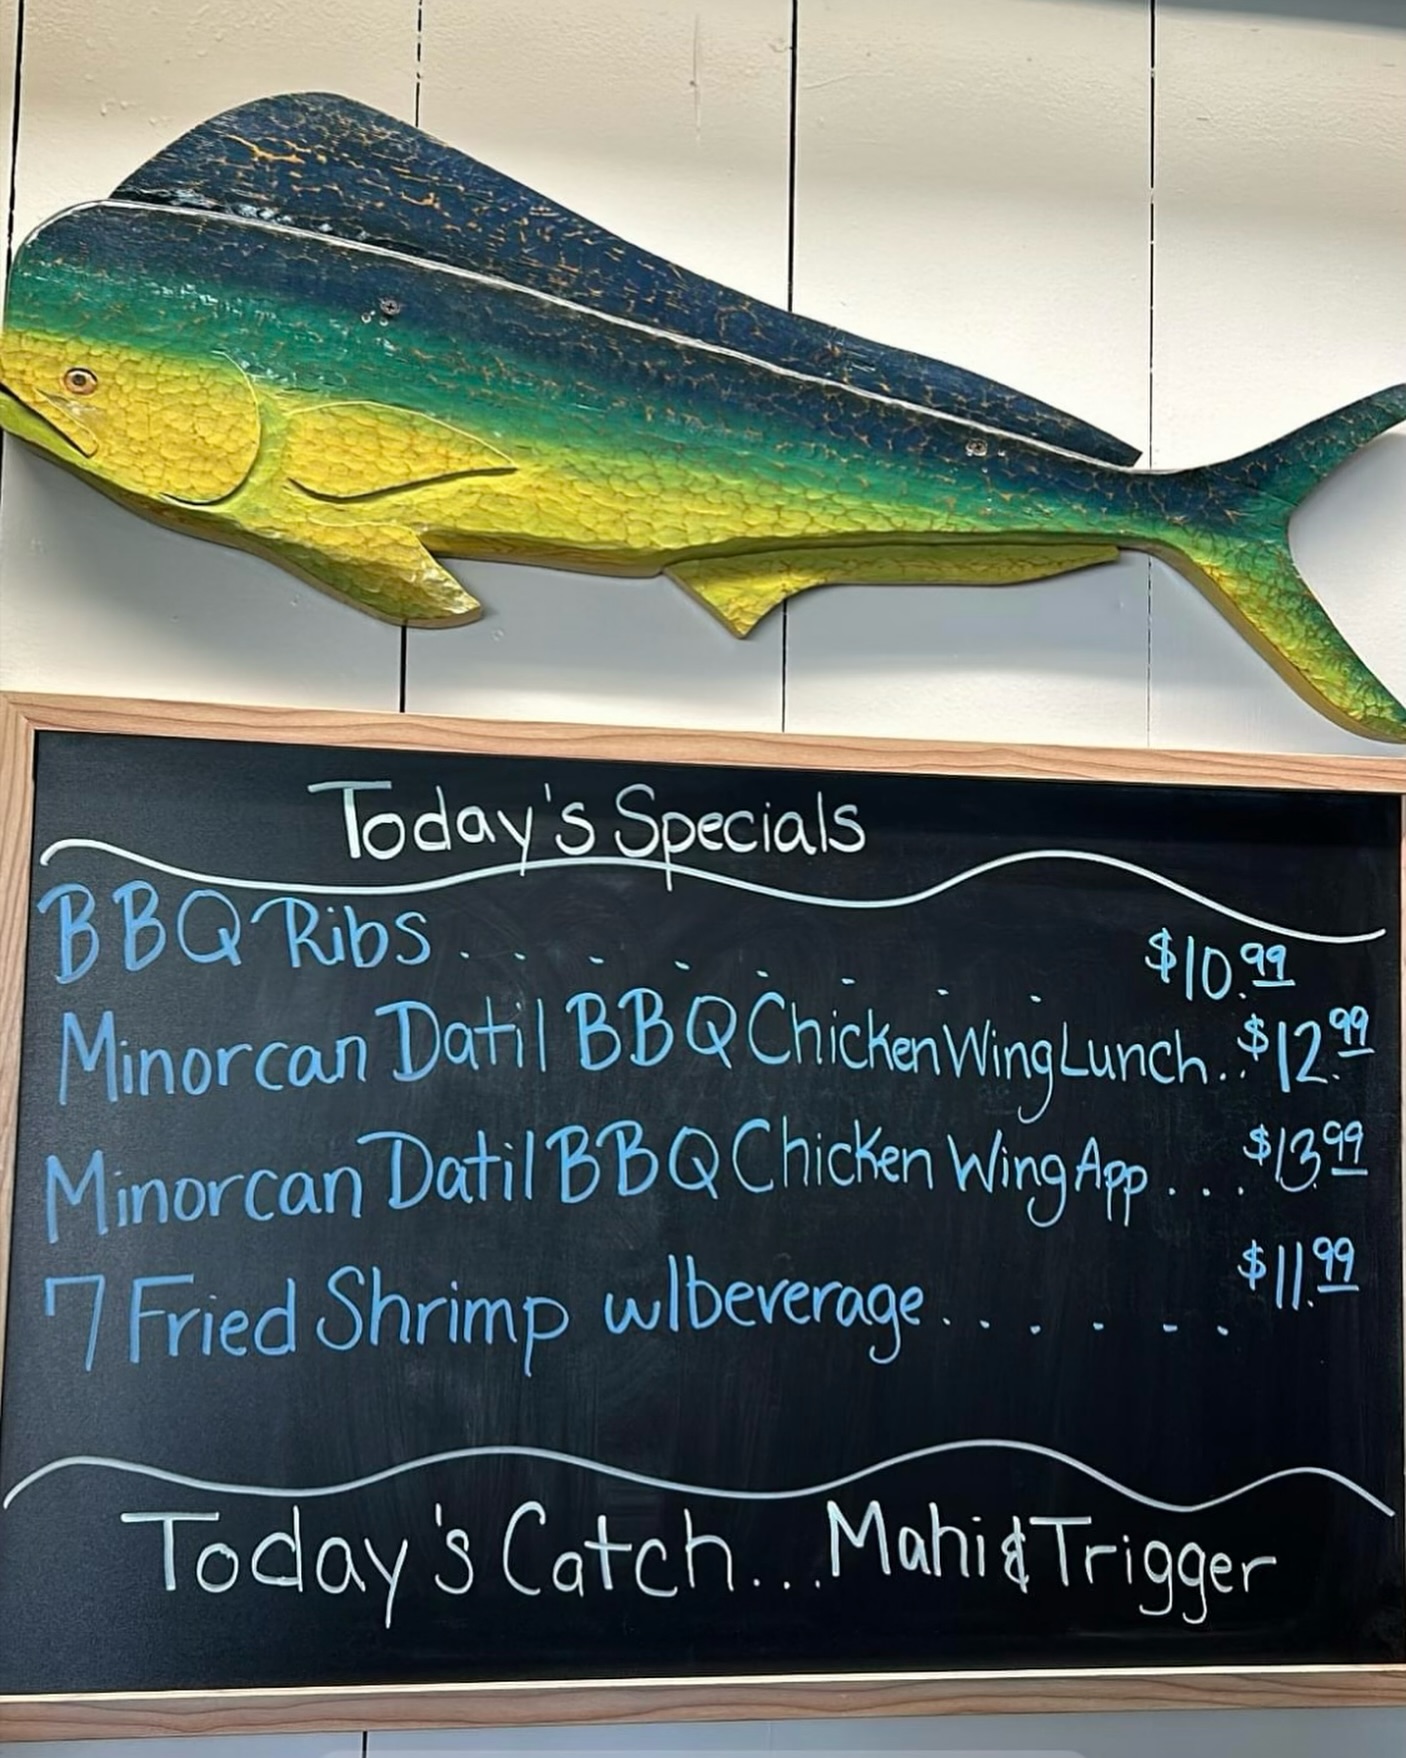 Today's Specials
BBQ Ribs........ $10.99
Minorcan Datil BBQ Chicken Wing Lunch..$12.99
Minorcan Datil BBQ Chicken Wing App...$13.99
7 Fried Shrimp w/beverage...... $11.99
Today's Catch...Mahi & Trigger